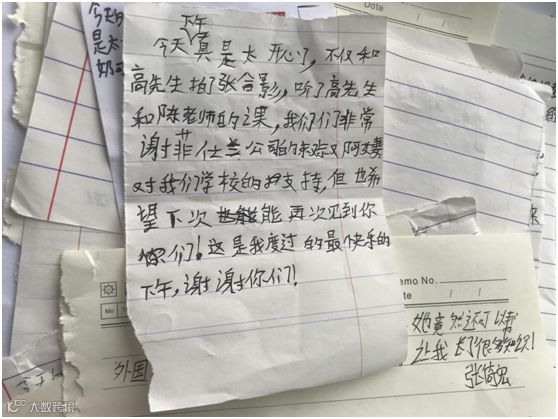 今天
是太
奶
Date
下午
今天真是太开心了，不仅和
高先生拍了张合影，听了高先生
和陈老师的课，我们们非常
谢菲仕兰公司的
对我们学校的支持，但也希
望下次能再次见到你
你们！这是我度过的最快乐的
下午，谢谢你们！
emo No.
Date / /
Mo
她竟然还可以帮
让我长了很多知识！
张倚宏
外国
大数跨境